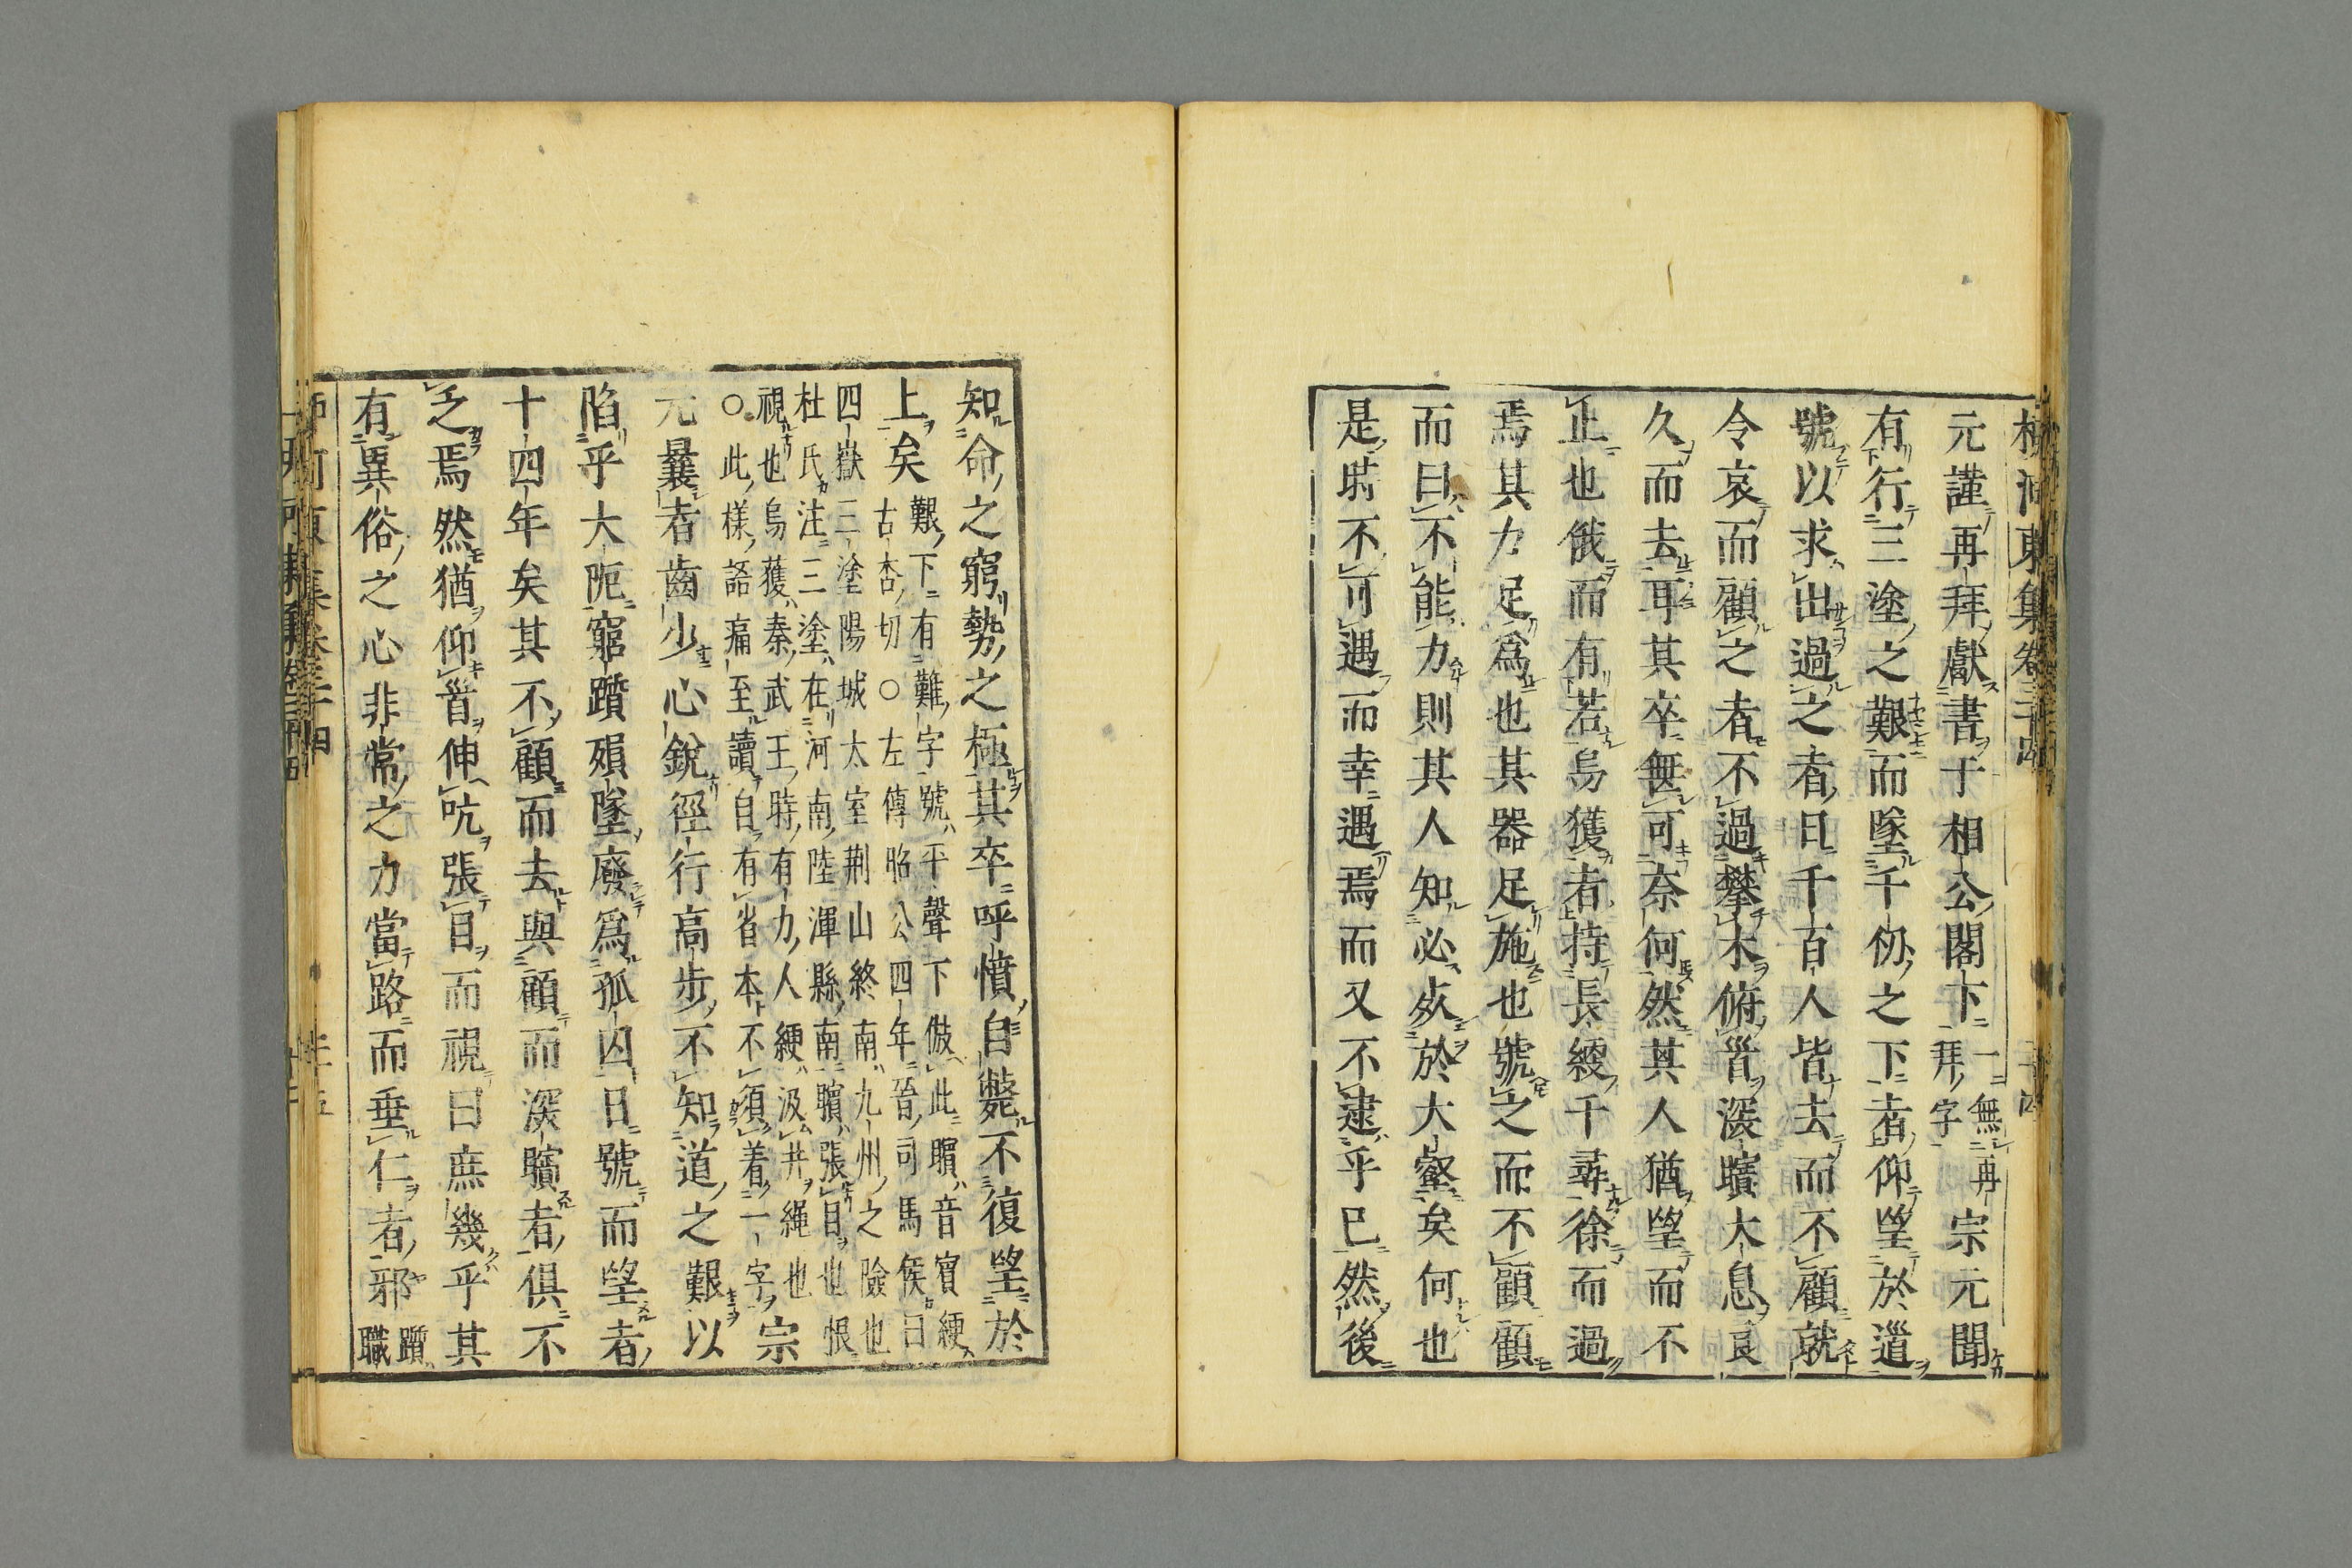 柳河東集卷三十四
元謹再拜獻書于相公閣下一無再拜字宗元聞
有行三塗之艱而墜千仞之下者仰望於道
號以求出過之者日千百人皆去而不顧就
令哀而顧之者不過攀木俯首深矉太息良
久而去耳其卒無可奈何然其人猶望而不
止也俄而有若烏獲者持長綆千尋徐而過
焉其力足為也其器足施也號之而不顧顧
而曰不能力則其人知必死於大壑矣何也
是時不可遇而幸遇焉而又不逮乎已然後
知命之窮勢之極其卒呼憤自斃不復望於
上矣艱下有難字號平聲下倣此矉音賓綆
古杏切○左傳昭公四年晉司馬侯曰
四嶽三塗陽城太室荊山終南九州之險也
杜氏注三塗在河南陸渾縣南矉張目也恨
視也烏獲秦武王時有力人綆汲井繩也
○此樣語痛至讀自有省本不須着一字宗
元曩者齒少心銳徑行高步不知道之艱以
陷乎大阨窮躓殞墜廢為孤囚日號而望者
十四年矣其不顧而去與顧而深矉者俱不
乏焉然猶仰首伸吭張目而視曰庶幾乎其
有異俗之心非常之力當路而垂仁者邪躓職